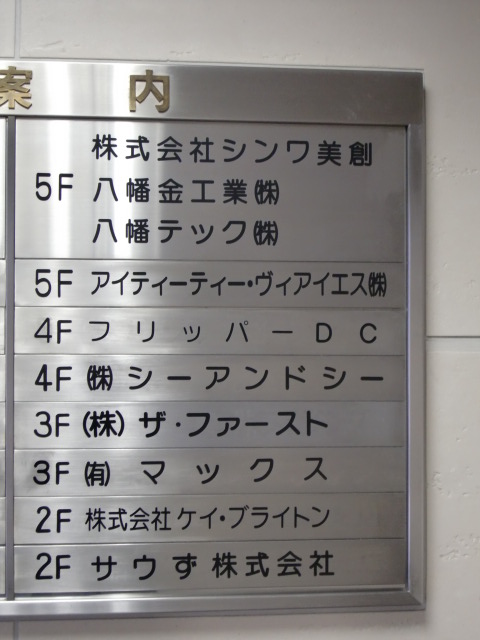 案内
株式会社シンワ美創
5F 八幡金工業㈱
八幡テック㈱
5F アイティーティー・ヴィアイエス㈱
4F フリッパーDC
4F ㈱シーアンドシー
3F (株)ザ・ファースト
3F ㈲マックス
2F 株式会社ケイ・ブライトン
2F サウず株式会社